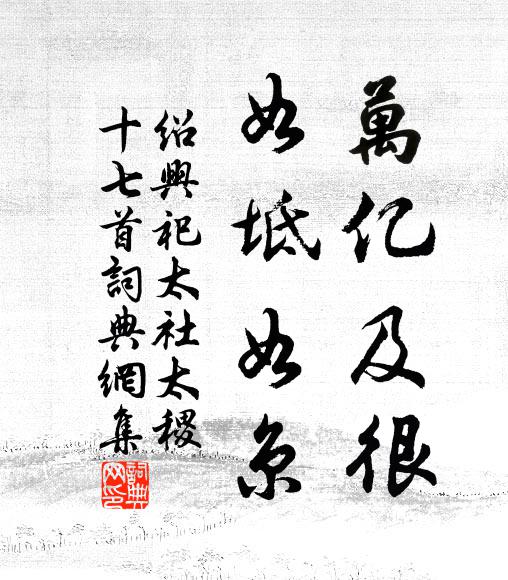 萬亿及很
如坻如京
绍興祀太社太稷
十七首詞典網集
詞典网印